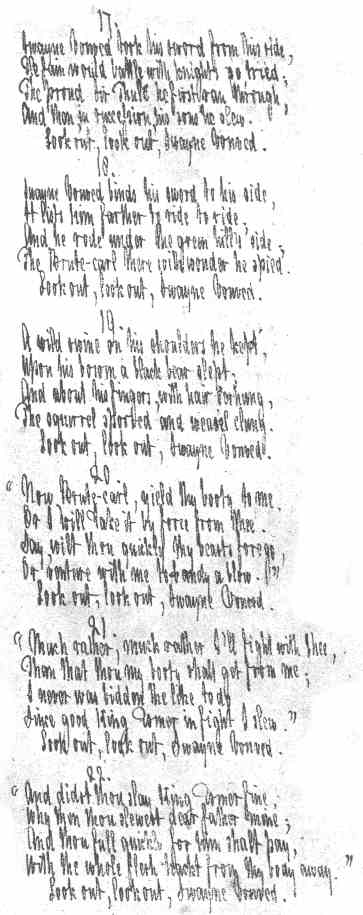 17.
Swayne Vonved took his sword from his side,
He fain would battle with knights so tried;
The proud Sir Thule he first ran through,
And then in succession his sons he slew.
Look out, look out, Swayne Vonved.
18.
Swayne Vonved binds his sword to his side,
It lists him farther to ride to ride.
And he rode under the green hill's side;
The Brute-carl there with wonder he spied.
Look out, look out, Swayne Vonved.
19
A wild swine on his shoulders he kept,
Upon his bosom a black bear slept,
And about his fingers, with hair o'erhung,
The squirrel sported and weasel clung.
Look out, look out, Swayne Vonved.
20
"Now Brute-carl, yield thy booty to me.
Or I will take it by force from thee.
Say, wilt thou quickly thy beasts forego,
Or venture with me to bandy a blow.
Look out, look out, Swayne Vonved.
21
"Much rather, much rather I'll fight with thee,
Than that thou my booty shalt get from me;
I never was bidden the like to do
Since good King Esmer in fight I slew."
Look out, look out, Swayne Vonved.
22.
"And didst thou slay King Esmer fine;
Why then thou slewest dear father mine;
And thou full quickly for him shalt pay,
With the whole flesh hackt from thy body away."
Look out, look out, Swayne Vonved.